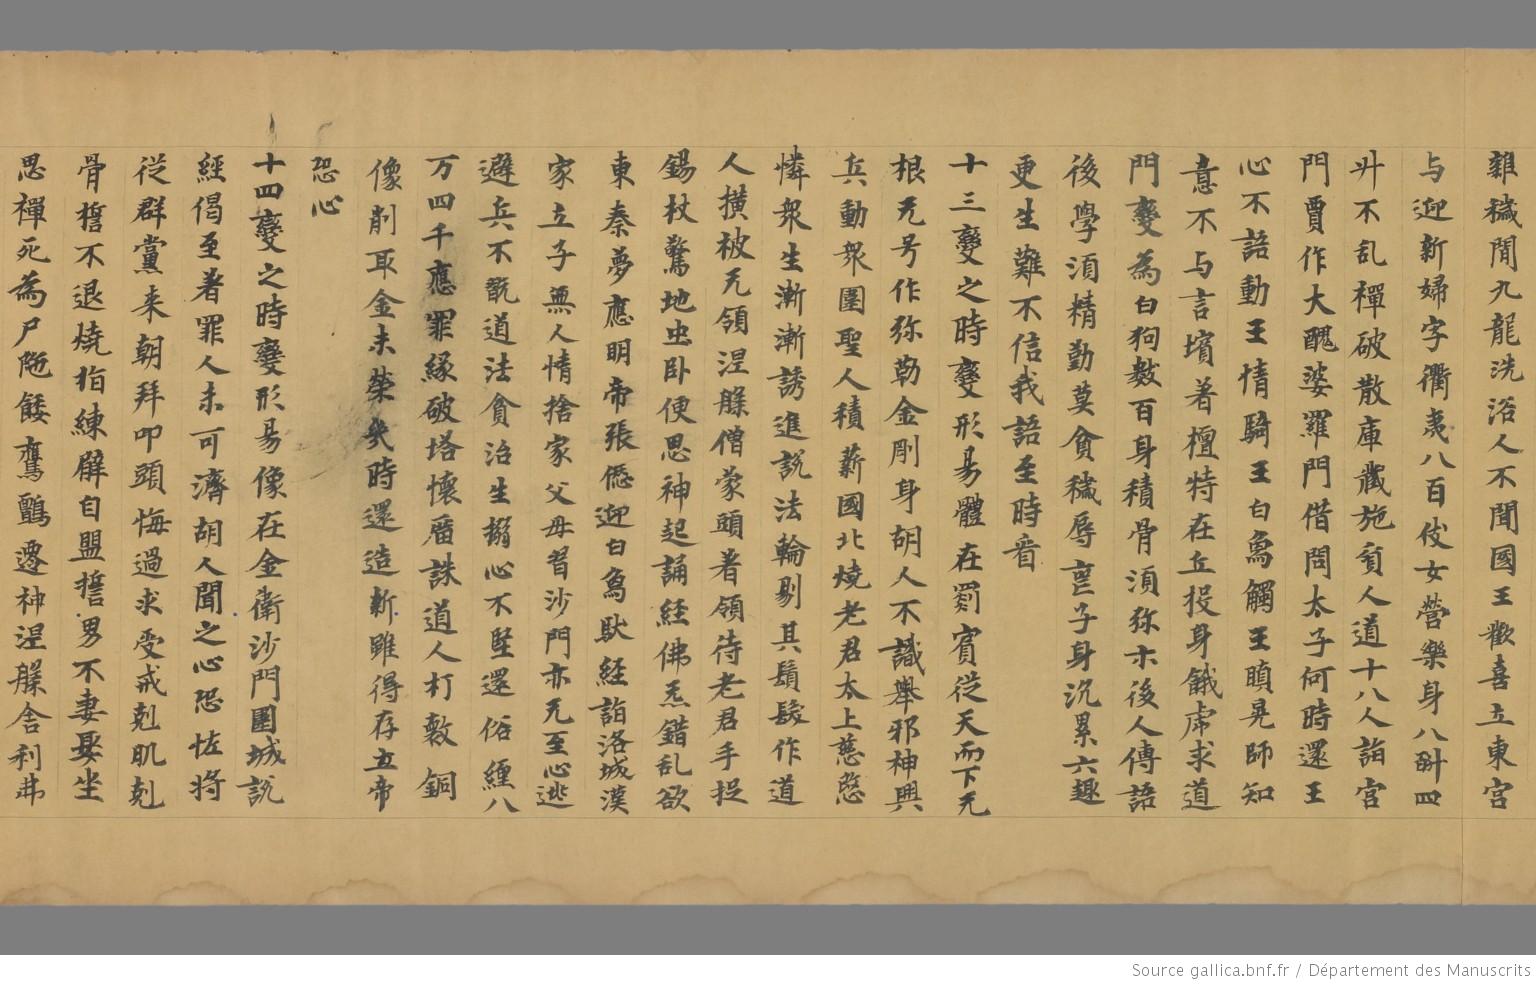 雜穢聞九龍洗浴人不聞國王歡喜立東宮
与迎新婦字衢夷八百伎女營樂身八斛四
斗不乱禪破散庫藏施貧人道十八人詣宮
門賈作大醜婆羅門借問太子何時還王
心不語動王情騎王白象觸王瞋晃師知
意不与言擯著檀特在丘投身餓虎求道
門變為白狗數百身積骨須弥示後人傳語
後學須精勤莫貪穢辱亡子身沉累六趣
更生難不信我語至時看
十三變之時變形易體在罽賓從天而下无
根无号作弥勒金剛身胡人不識舉邪神興
兵動眾圍聖人積薪國北燒老君太上慈愍
憐眾生漸漸誘進說法輪剔其鬚髮作道
人橫被无領涅槃僧蒙頭著領待老君手捉
錫杖驚地虫卧便思神起誦經佛炁錯乱欲
東秦夢應明帝張僁迎白象馱經詣洛城漢
家立子無人情捨家父母習沙門亦无至心逃
避兵不翫道法貪治生搦心不堅還俗纏八
万四千應罪緣破塔懷曆誅道人打敷銅
像削取金未榮幾時還造新雖得存立帝
恐心
十四變之時變形易像在金衛沙門圍城說
經偈至者罪人未可濟胡人聞之心恐怯將
從群黨来朝拜叩頭悔過求受戒剋肌剋
骨誓不退燒指練臂自盟誓男不妻娶坐
思禪死為尸陁餧鷹鸇遷神涅槃舍利弗